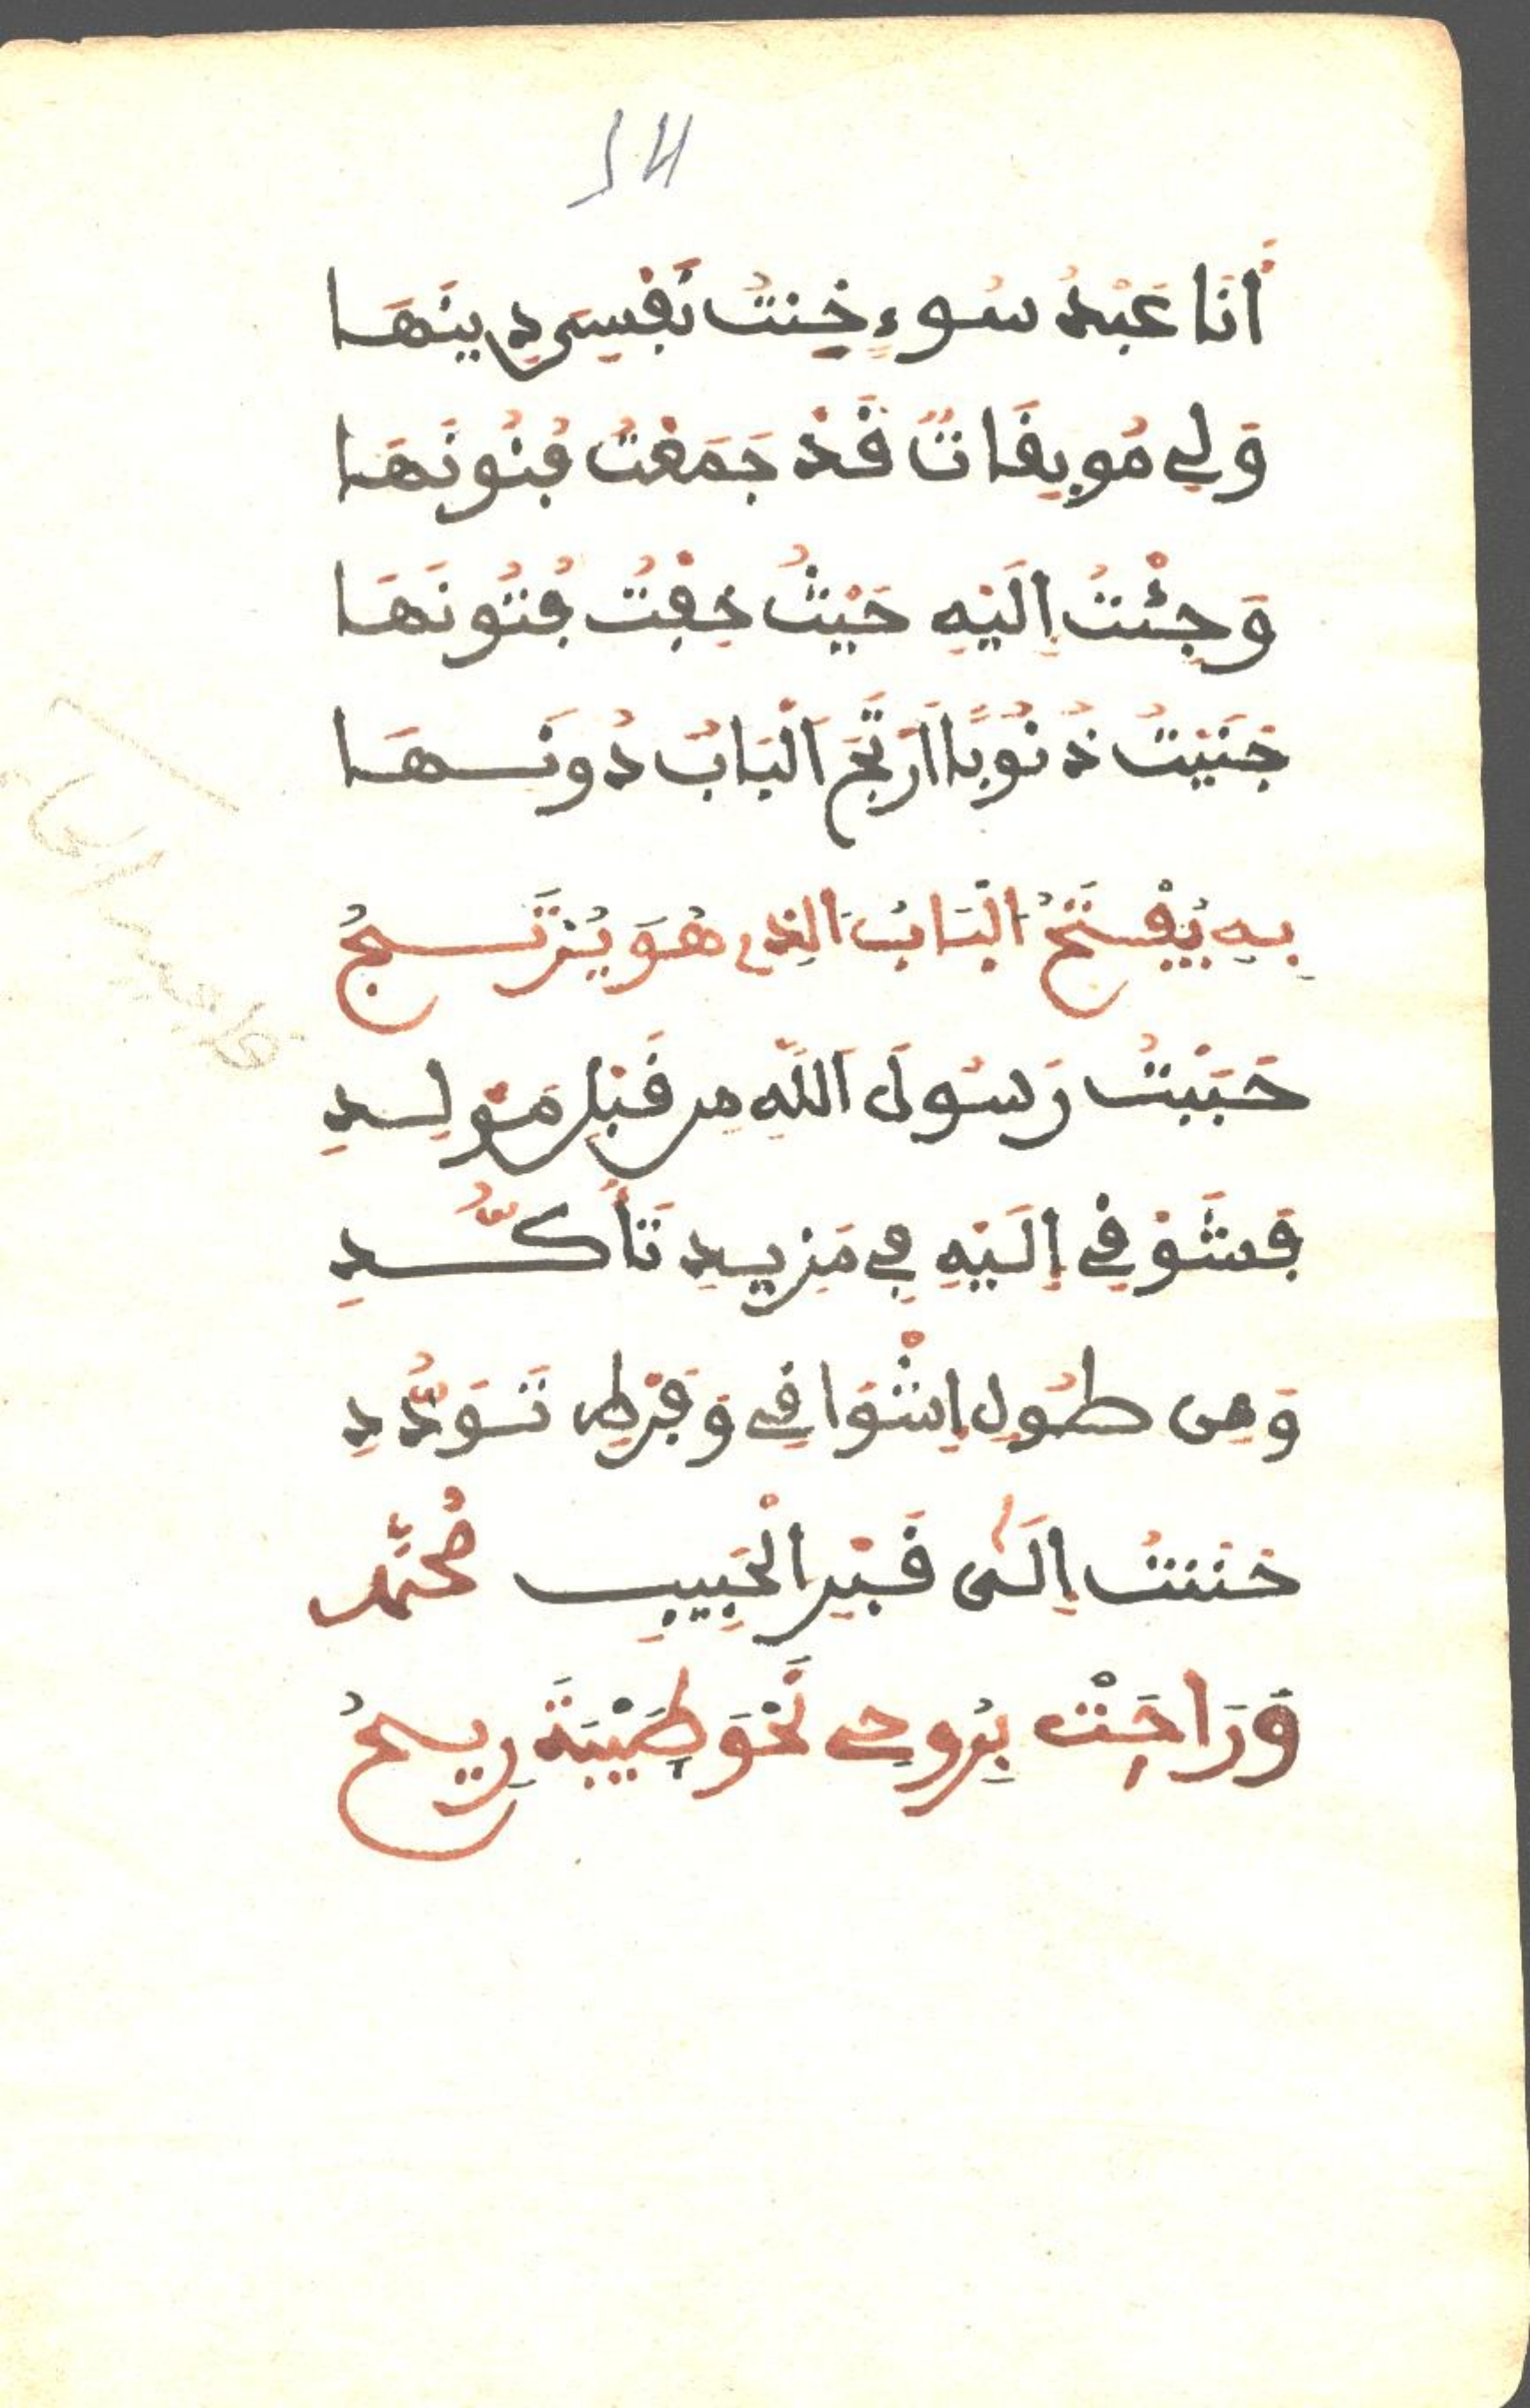 أَنَا عَبْدُ سُوءٍ خِنتُ نَفْسِى دِينَهَا
وَلِي مُوبِقَاتٌ قَدْ جَمَعْتُ فُنُونَهَا
وَجِئْتُ إِلَيْهِ حَيْثُ خِفْتُ فُتُونَهَا
جَنَيْتُ ذُنُوبًا أَرْتَجَ الْبَابُ دُونَهَا
بِهِ يُفْتَحُ الْبَابُ الذِى هُوَ يُرْتَجُ
حَبَبْتُ رَسُولَ اللَّهِ مِن قَبْلِ مَوْلِدِ
فَشَوْقِي إِلَيْهِ فِي مَزِيدِ تَأَكُّدِ
وَمِن طُولِ إِشْوَاقِي وَفَرْطِ تَوَدُّدِ
حَنَنتُ إِلَى قَبْرِ الْحَبِيبِ مُحَمَّد
وَرَاحَتْ بِرُوحِي نَحْوَ طَيْبَةَ رِيحُ